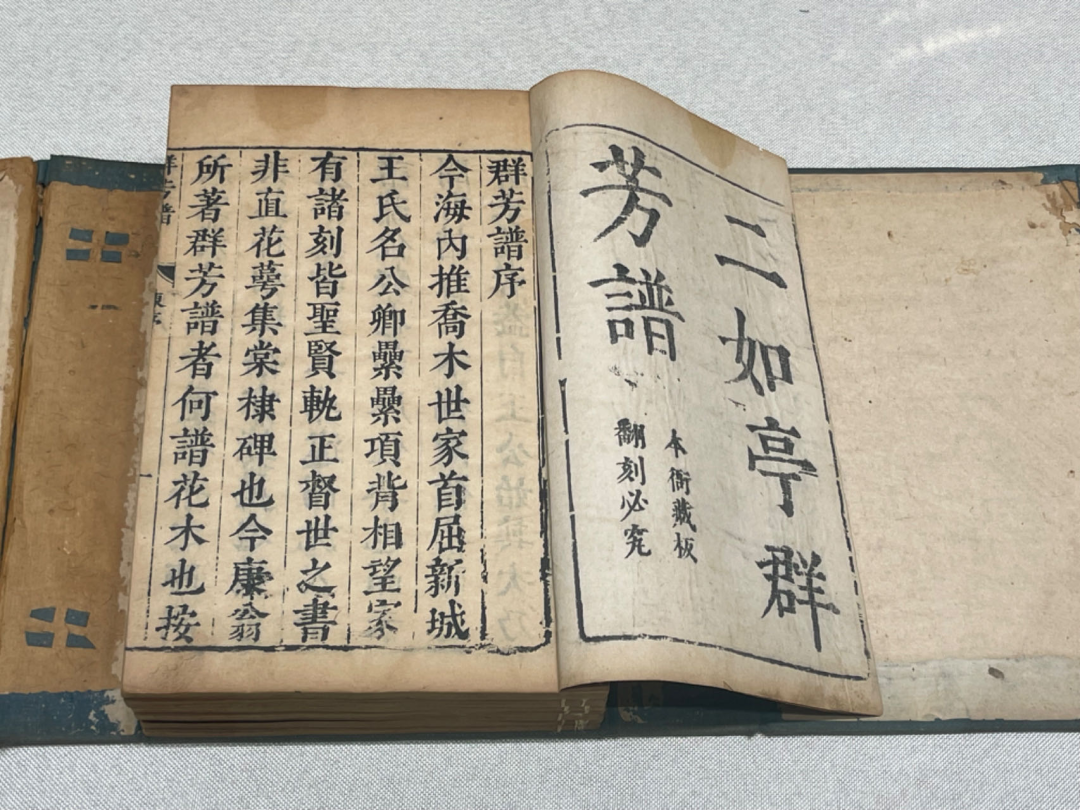 二如亭群
芳譜
本衙藏板
翻刻必究
群芳譜序
今海內推喬木世家首屈新城
王氏名公卿纍纍項背相望家
有諸刻皆聖賢軌正督世之書
非直花萼集棠棣碑也今康翁
所著群芳譜者何譜花木也按
群芳譜